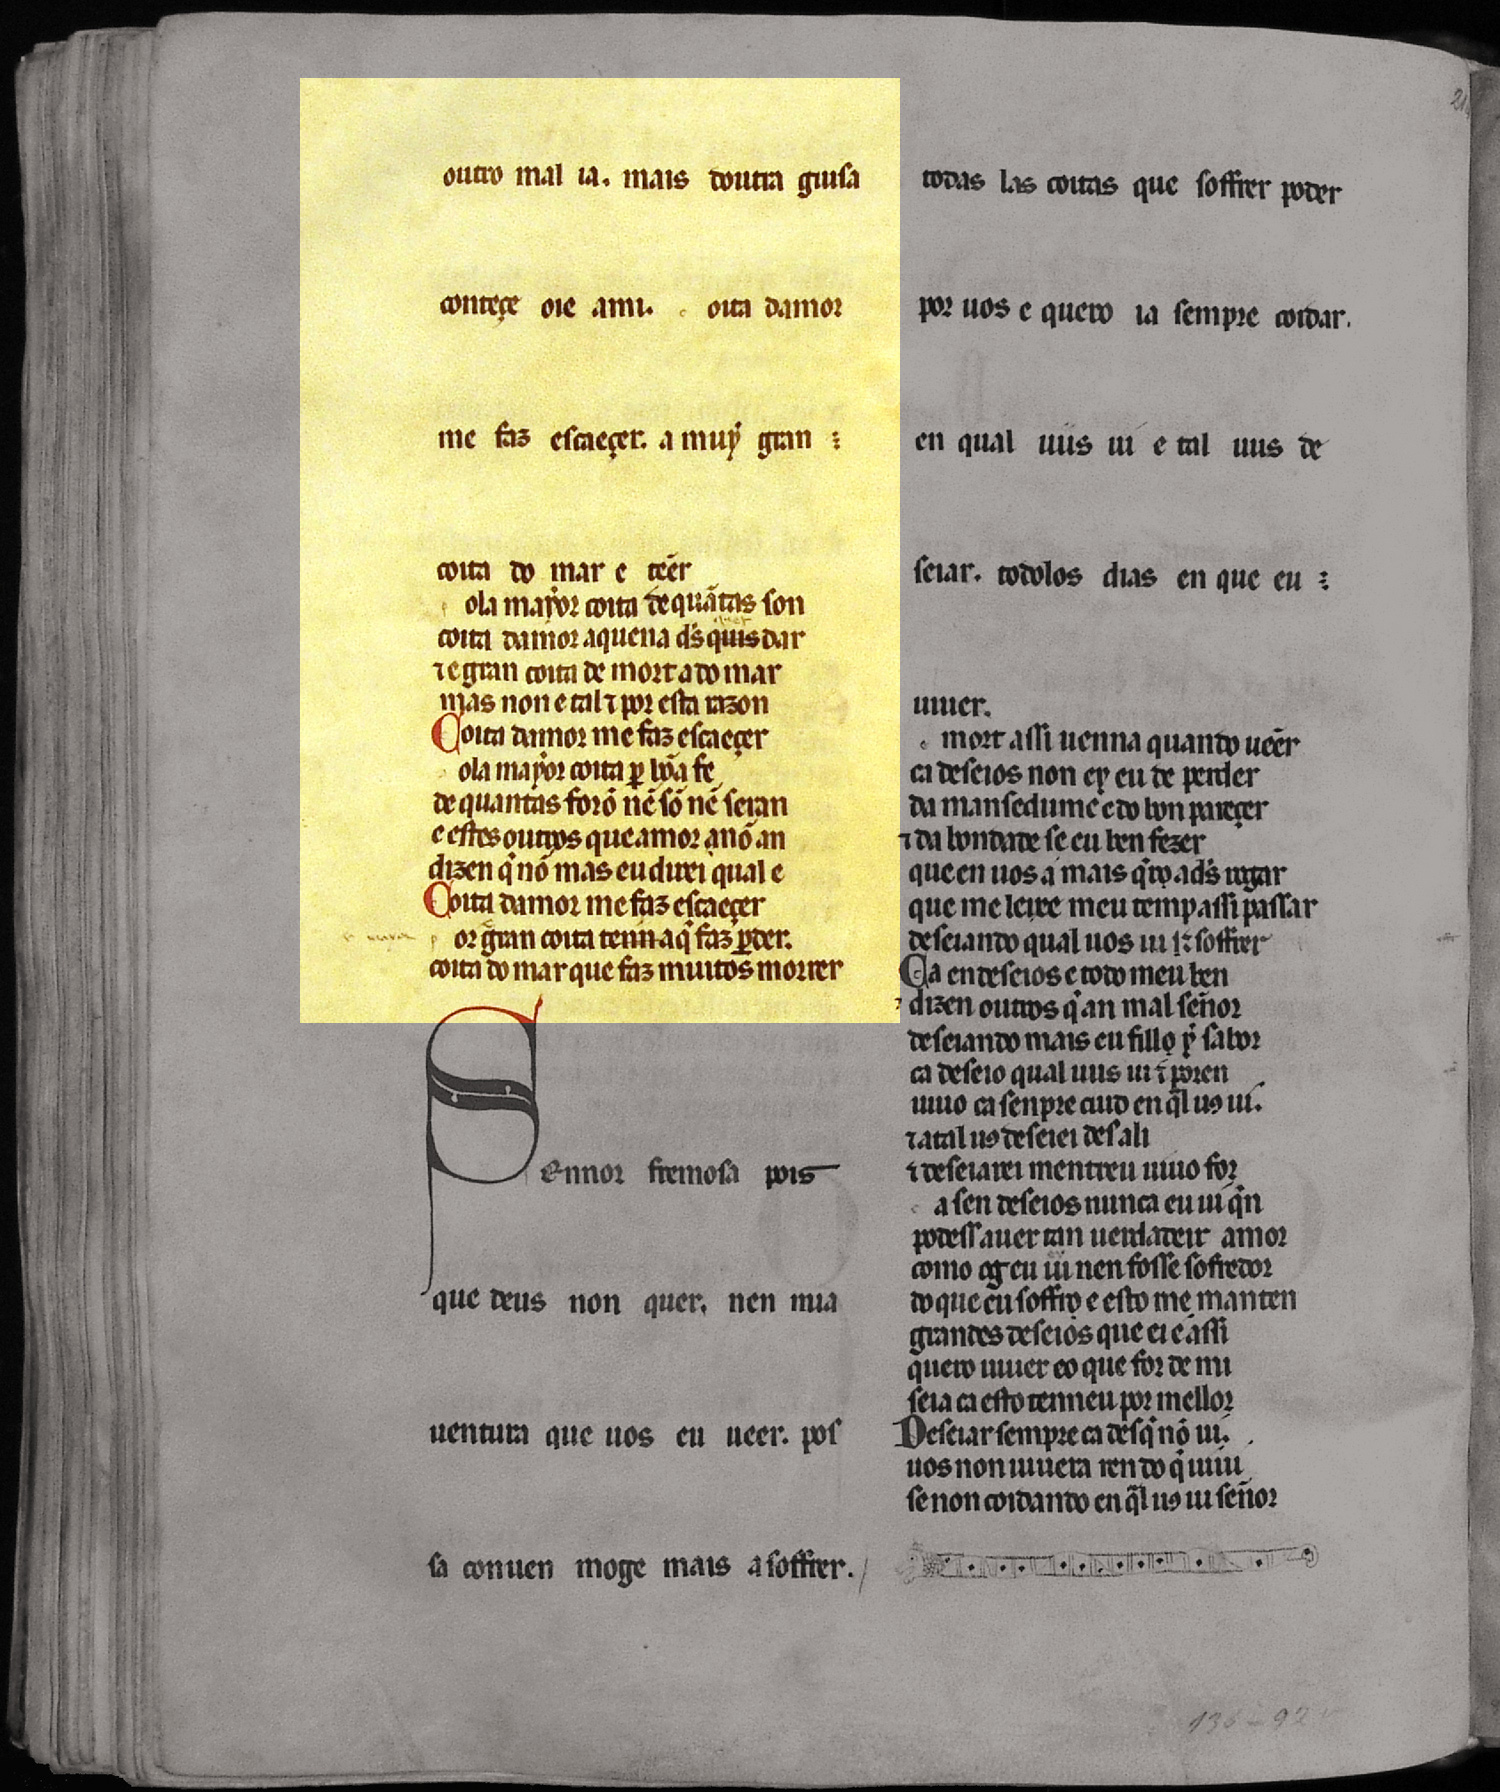 outro mal ia. mais doutra guisa
conteçe oie ami. oita damor
me faz escaeçer. a muẏ gran
coita do mar e teẽr
ola mayor coita de quãtas son
coita damor aquena d's quis dar
⁊ e gran coita de mort a do mar
mas non e tal ⁊ por esta razon
Coita damor me faz escaeçer
ola mayor coita ꝑ bõa fe
de quantas forõ nẽ sõ nẽ seran
e estes outros que amor a nõ an
dizen q̃ nõ mas eu direi qual e
Coita damor me faz escaeçer
or grãn coita tenn aq̃ faz ꝑder.
coita do mar que faz muitos morrer
Sennor fremosa pois
que deus non quer. nen mia
uentura que uos eu ueer. pos
sa conuen moge mais a soffrer.
todas las coitas que soffrer poder
por uos e quero ia sempre coidar.
en qual uus ui e tal uus de
seiar. todolos dias en que eu
uiuer.
mort assi uenna quando ueẽr
ca deseios non eẏ eu de perder
da mansedume e do bon pareçer
⁊ da bondade se eu ben fezer
que en uos a mais q̃ro a d's rogar
que me leixe meu temp assi passar
deseiando qual uos ui ⁊ soffrer
Ca en deseios e todo meu ben
dizen outros q̃ an mal señor
deseiando mais eu fillo ẏ sabor
ca deseio qual uus ui ⁊ poren
uiuo ca senpre cuid en q̃l uꝯ ui.
⁊ a tal uꝯ deseiei des ali
⁊ deseiarei mentreu uiuo for
a sen deseios nunca eu ui q̃n
podess auer tan uerdadeir amor
como og eu ui nen fosse sofredor
do que eu soffro e esto me manten
grandes deseios que ei e assi
quero uiuer eo que for de mi
seia ca esto tenneu por mellor
Deseiar sempre ca desq̃ nõ ui.
uos non uiuera ren do q̃ uiui
se non coidando en q̃l uꝯ ui señor
136-92